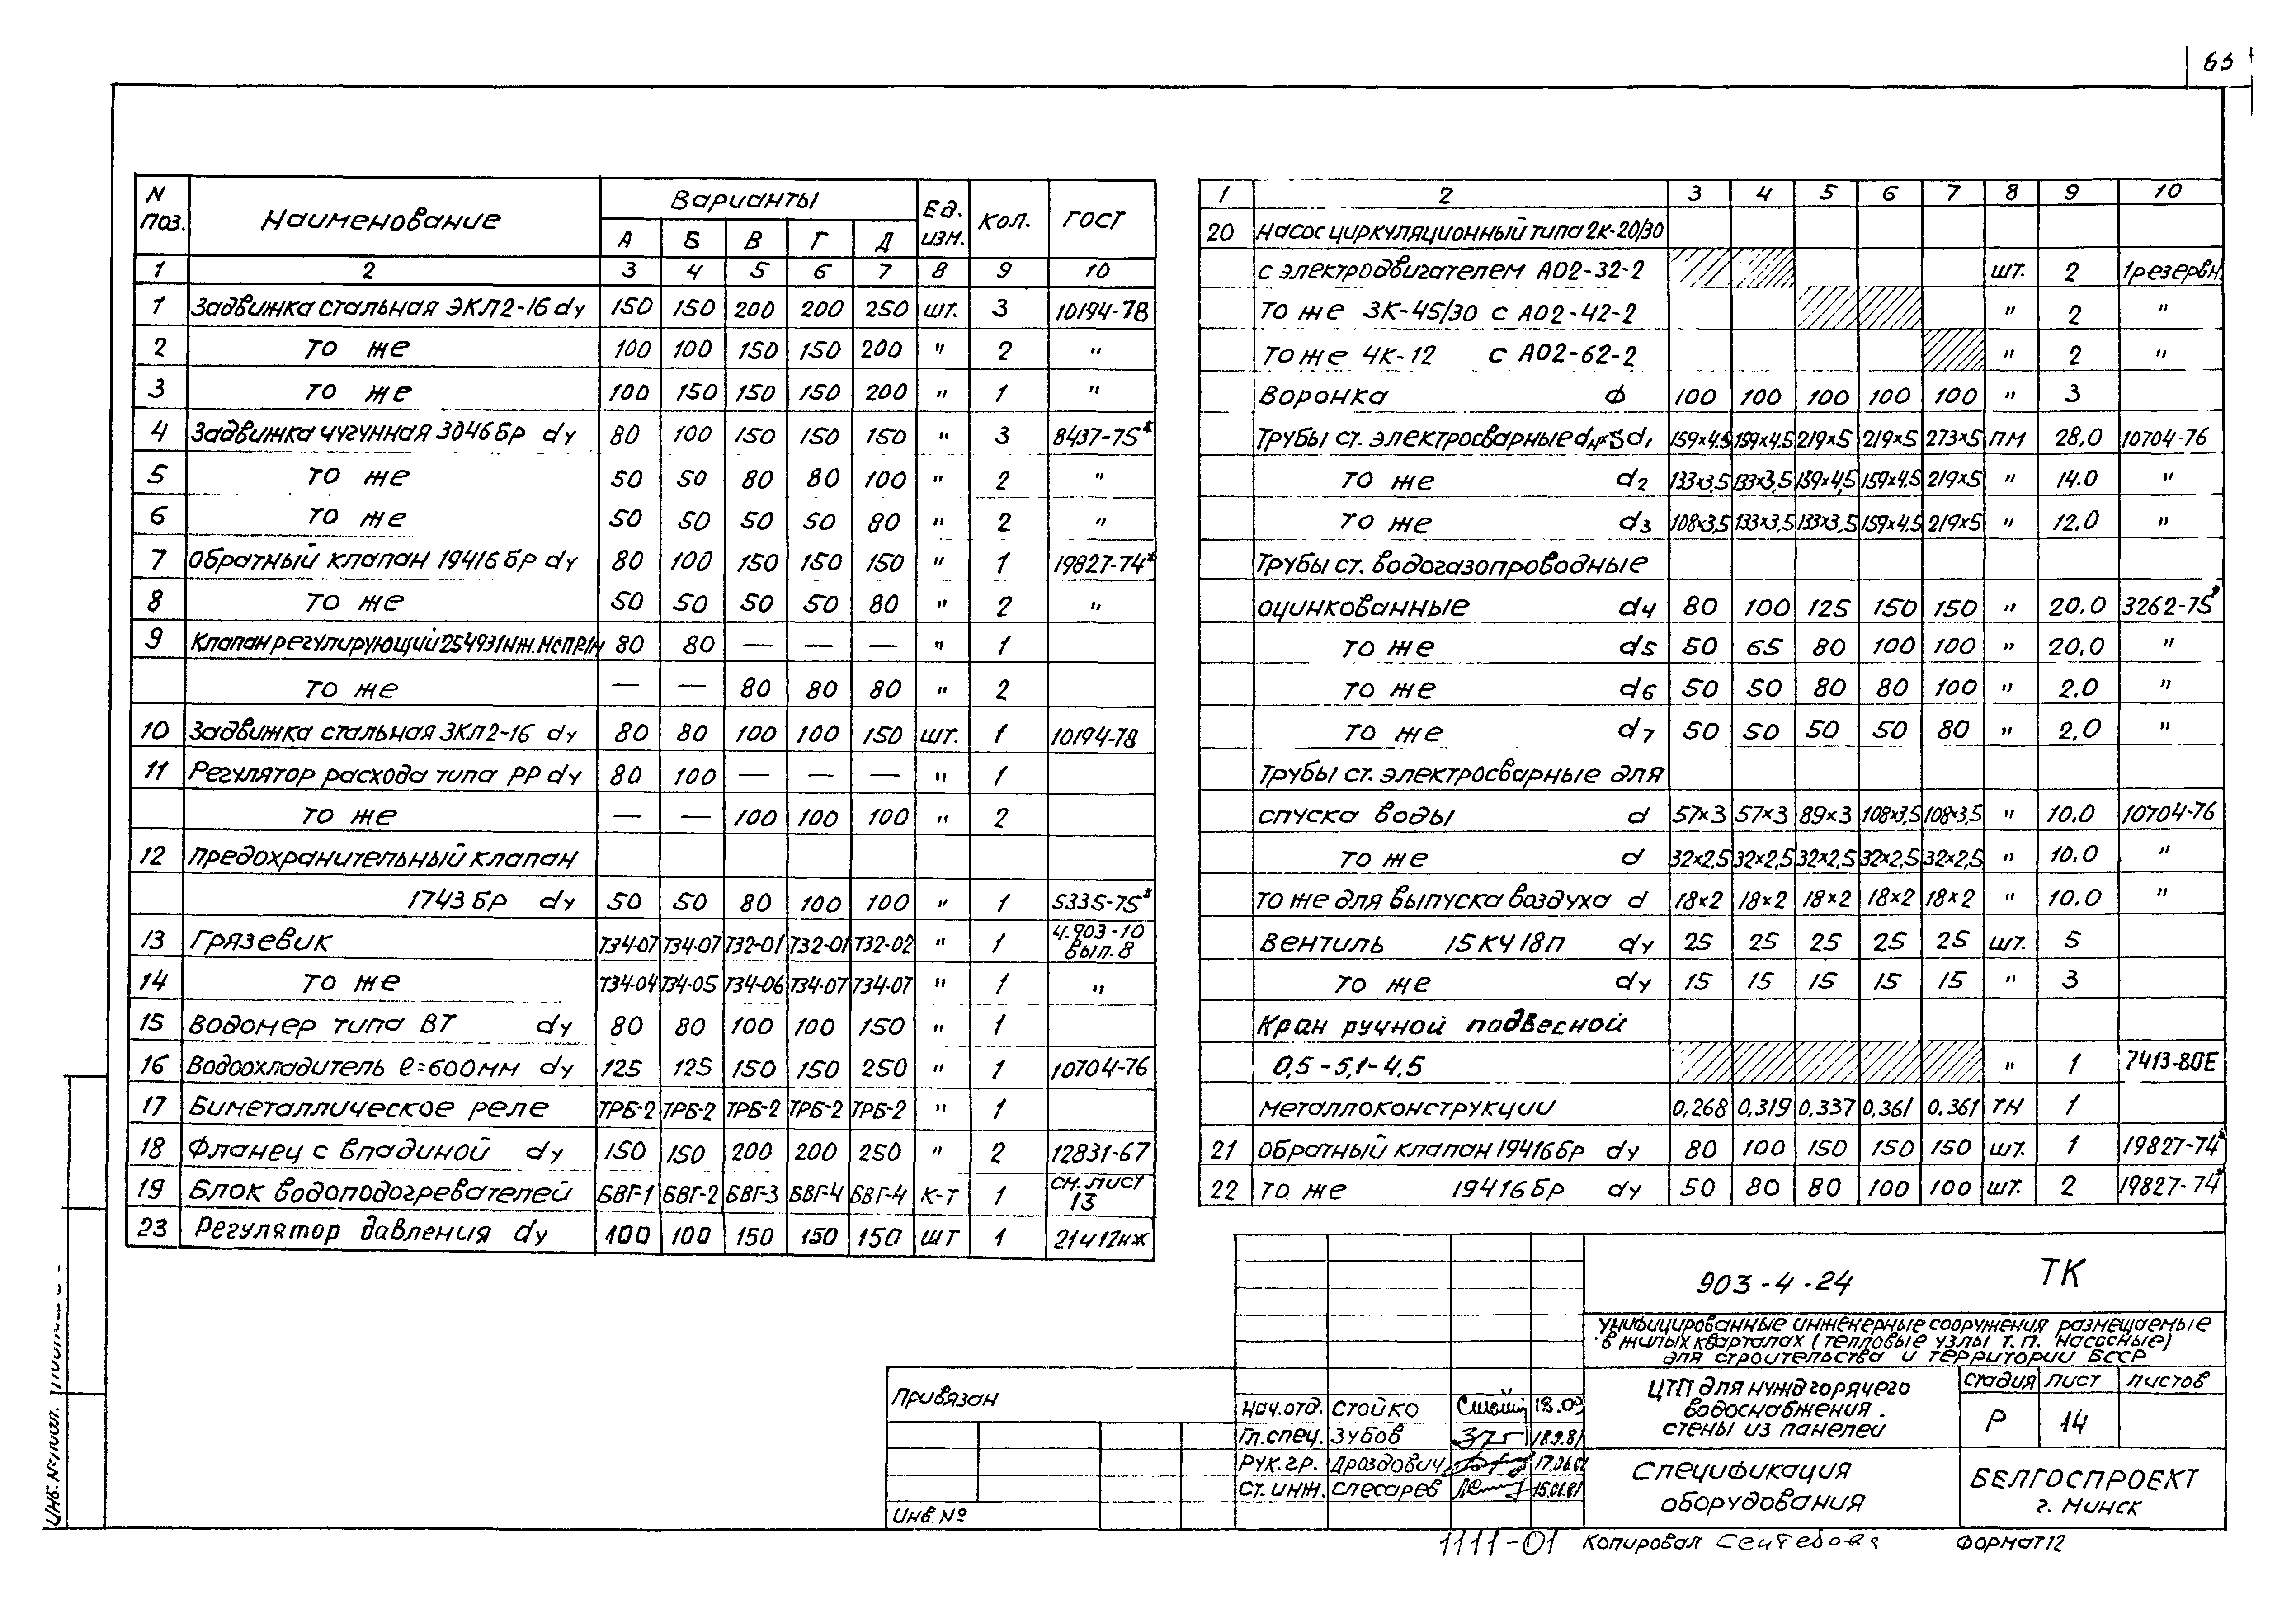 63
N поз. Наименование Варианты Ед. изм. Кол. ГОСТ
А Б В Г Д
1 2 3 4 5 6 7 8 9 10
1 Задвижка стальная ЭКЛ2-16 dу 150 150 200 200 250 шт. 3 10194-78
2 то же 100 100 150 150 200 " 2 "
3 то же 100 150 150 150 200 " 1 "
4 Задвижка чугунная 30ч6бр dу 80 100 150 150 150 " 3 8437-75*
5 то же 50 50 80 80 100 " 2 "
6 то же 50 50 50 50 80 " 2 "
7 Обратный клапан 19ч16бр dу 80 100 150 150 150 " 1 19827-74*
8 то же 50 50 50 50 80 " 2 "
9 Клапан регулирующий 25ч931нж. 80 80 — — — " 1
то же — — 80 80 80 " 2
10 Задвижка стальная ЗКЛ2-16 dу 80 80 100 100 150 шт. 1 10194-78
11 Регулятор расхода типа РР dу 80 100 — — — " 1
то же — — 100 100 100 " 2
12 Предохранительный клапан
17ч3бр dу 50 50 80 100 100 " 1 5335-75*
13 Грязевик Т34-07 Т34-07 Т32-01 Т32-01 Т32-02 " 1 4.903-10 вып.8
14 то же Т34-04 Т34-05 Т34-06 Т34-07 Т34-07 " 1 "
15 Водомер типа ВТ dу 80 80 100 100 150 " 1
16 Водоохладитель ℓ=600мм dу 125 125 150 150 250 " 1 10704-76
17 Биметаллическое реле ТРБ-2 ТРБ-2 ТРБ-2 ТРБ-2 ТРБ-2 " 1
18 Фланец с впадиной dу 150 150 200 200 250 " 2 12831-67
19 Блок водоподогревателей БВГ-1 БВГ-2 БВГ-3 БВГ-4 БВГ-4 к-т 1 см. лист 13
23 Регулятор давления dу 100 100 150 150 150 шт 1 21ч12нж
1 2 3 4 5 6 7 8 9 10
20 Насос циркуляционный типа 2К-20/30
с электродвигателем АО2-32-2 шт. 2 1резервн.
то же 3К-45/30 с АО2-42-2 " 2 "
то же 4К-12 с АО2-62-2 " 2 "
Воронка Ф 100 100 100 100 100 " 3
Трубы ст. электросварные dн×S d1 159×4.5 159×4.5 219×5 219×5 273×5 пм 28,0 10704-76
то же d2 133×3,5 133×3,5 159×4,5 159×4.5 219×5 " 14.0 "
то же d3 108×3,5 133×3,5 133×3,5 159×4.5 219×5 " 12.0 "
Трубы ст. водогазопроводные
оцинкованные d4 80 100 125 150 150 " 20,0 3262-75*
то же d5 50 65 80 100 100 " 20,0 "
то же d6 50 50 80 80 100 " 2.0 "
то же d7 50 50 50 50 80 " 2,0 "
Трубы ст. электросварные для
спуска воды d 57×3 57×3 89×3 108×3,5 108×3,5 " 10.0 10704-76
то же d 32×2,5 32×2,5 32×2,5 32×2,5 32×2,5 " 10.0 "
то же для выпуска воздуха d 18×2 18×2 18×2 18×2 18×2 " 10.0 "
Вентиль 15КЧ18п dу 25 25 25 25 25 шт. 5
то же dу 15 15 15 15 15 " 3
Кран ручной подвесной
0,5-5,1-4,5 " 1 7413-80Е
металлоконструкции 0,268 0,319 0,337 0,361 0.361 тн 1
21 Обратный клапан 19ч16бр dу 80 100 150 150 150 шт. 1 19827-74*
22 то же 19ч16бр dу 50 80 80 100 100 шт. 2 19827-74*
903-4-24 ТК
Унифицированные инженерные сооружения размещаемые
в жилых кварталах (тепловые узлы т.п. насосные)
для строительства и территории БССР
ЦТП для нужд горячего
водоснабжения.
стены из панелей
стадия лист листов
Р 14
Спецификация
оборудования
БЕЛГОСПРОЕКТ
г. Минск
Привязан
Инв. №
Нач.отд. Стойко 18.09
Гл.спец. Зубов 18.9.81
Рук.гр. Дроздович
Ст. инж. Слесарев 15.01.81
Инв. №подл.
1111-01 Копировал Формат12